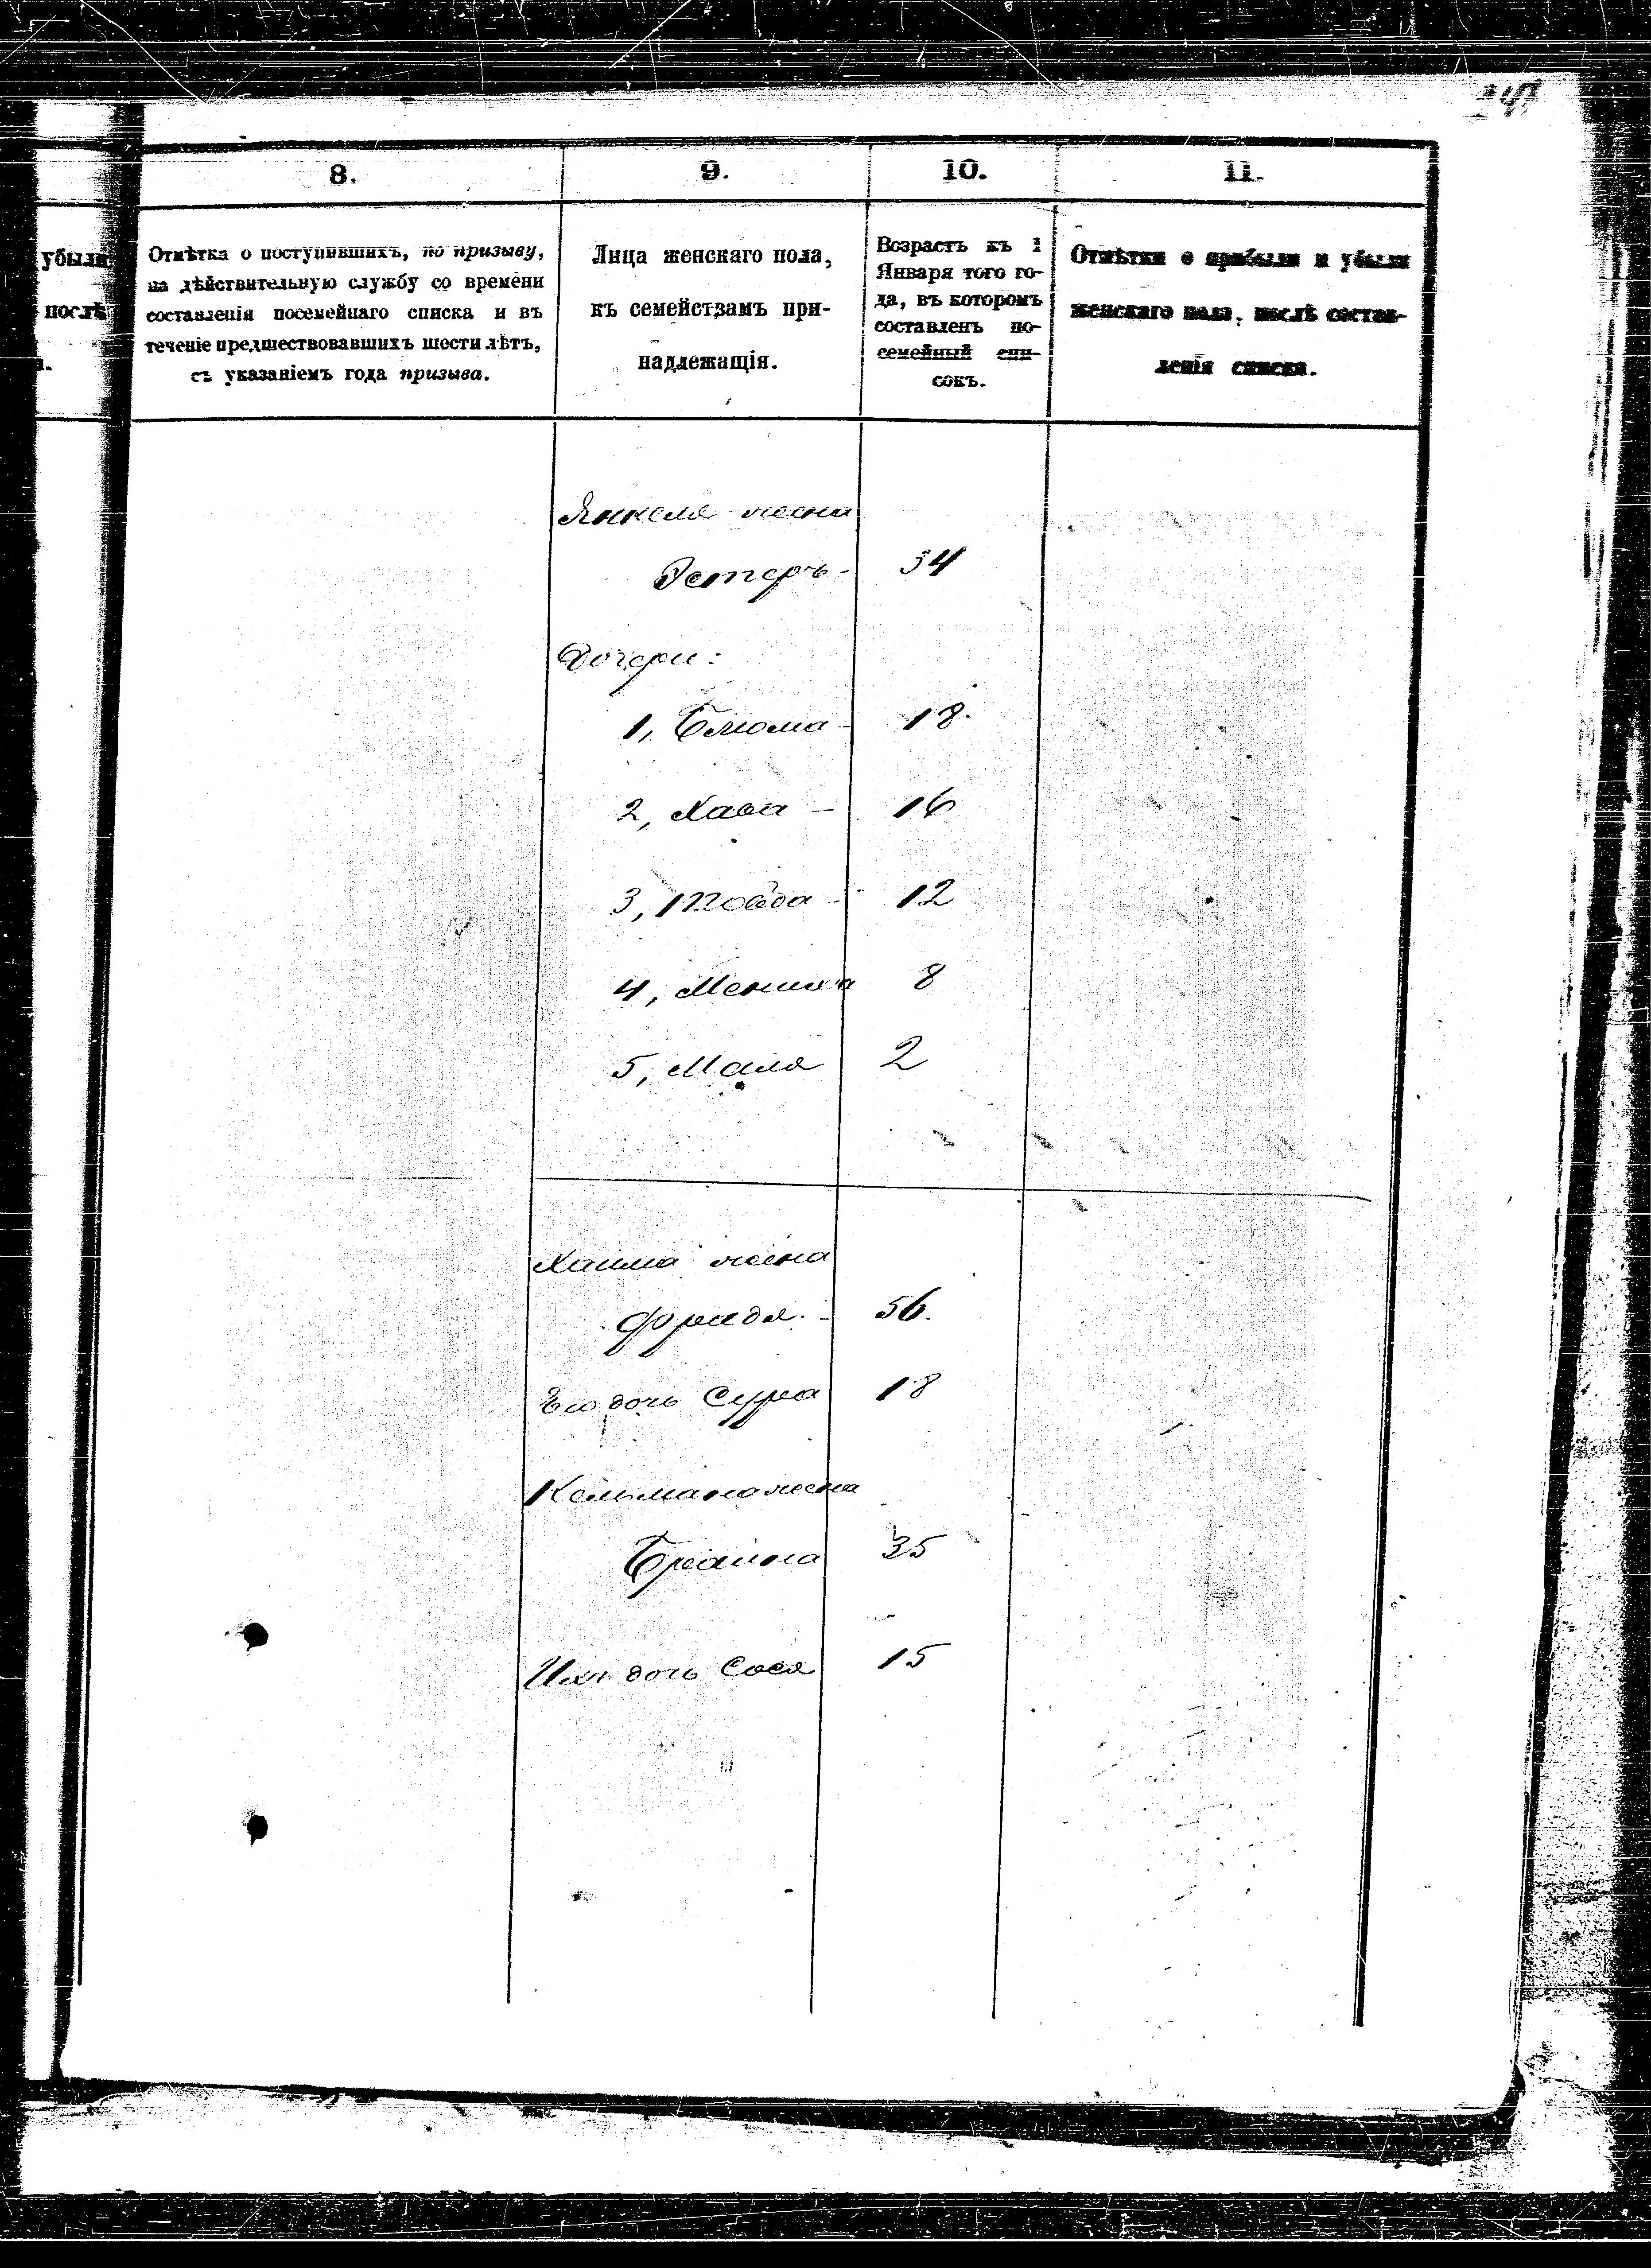 8.
9.
10.
11.
убыли
послѣ
Отмѣтка о поступившихъ, по призыву,
на дѣйствительную службу со времени
составленія посемейнаго списка и въ
теченіе предшествовавшихъ шести лѣтъ,
съ указаніемъ года призыва.
Лица женскаго пола,
къ семействамъ при-
надлежащія.
Возрастъ къ 1
Января того го-
да, въ которомъ
составленъ по-
семейный спи-
сокъ.
Отмѣтки о прибыли и убыли
женскаго пола, послѣ состав-
ленія списка.
Янкеля жена
Эстеръ - 34
Дочери:
1, Блюма - 18.
2, Хава - 16
3, Товба - 12
4, Мениха 8
5, Маля 2
Хаима жена
Фрадя. - 56.
Его дочь Сура 18
Кельмана жена
Браина 35
Ихъ дочь Сося 15